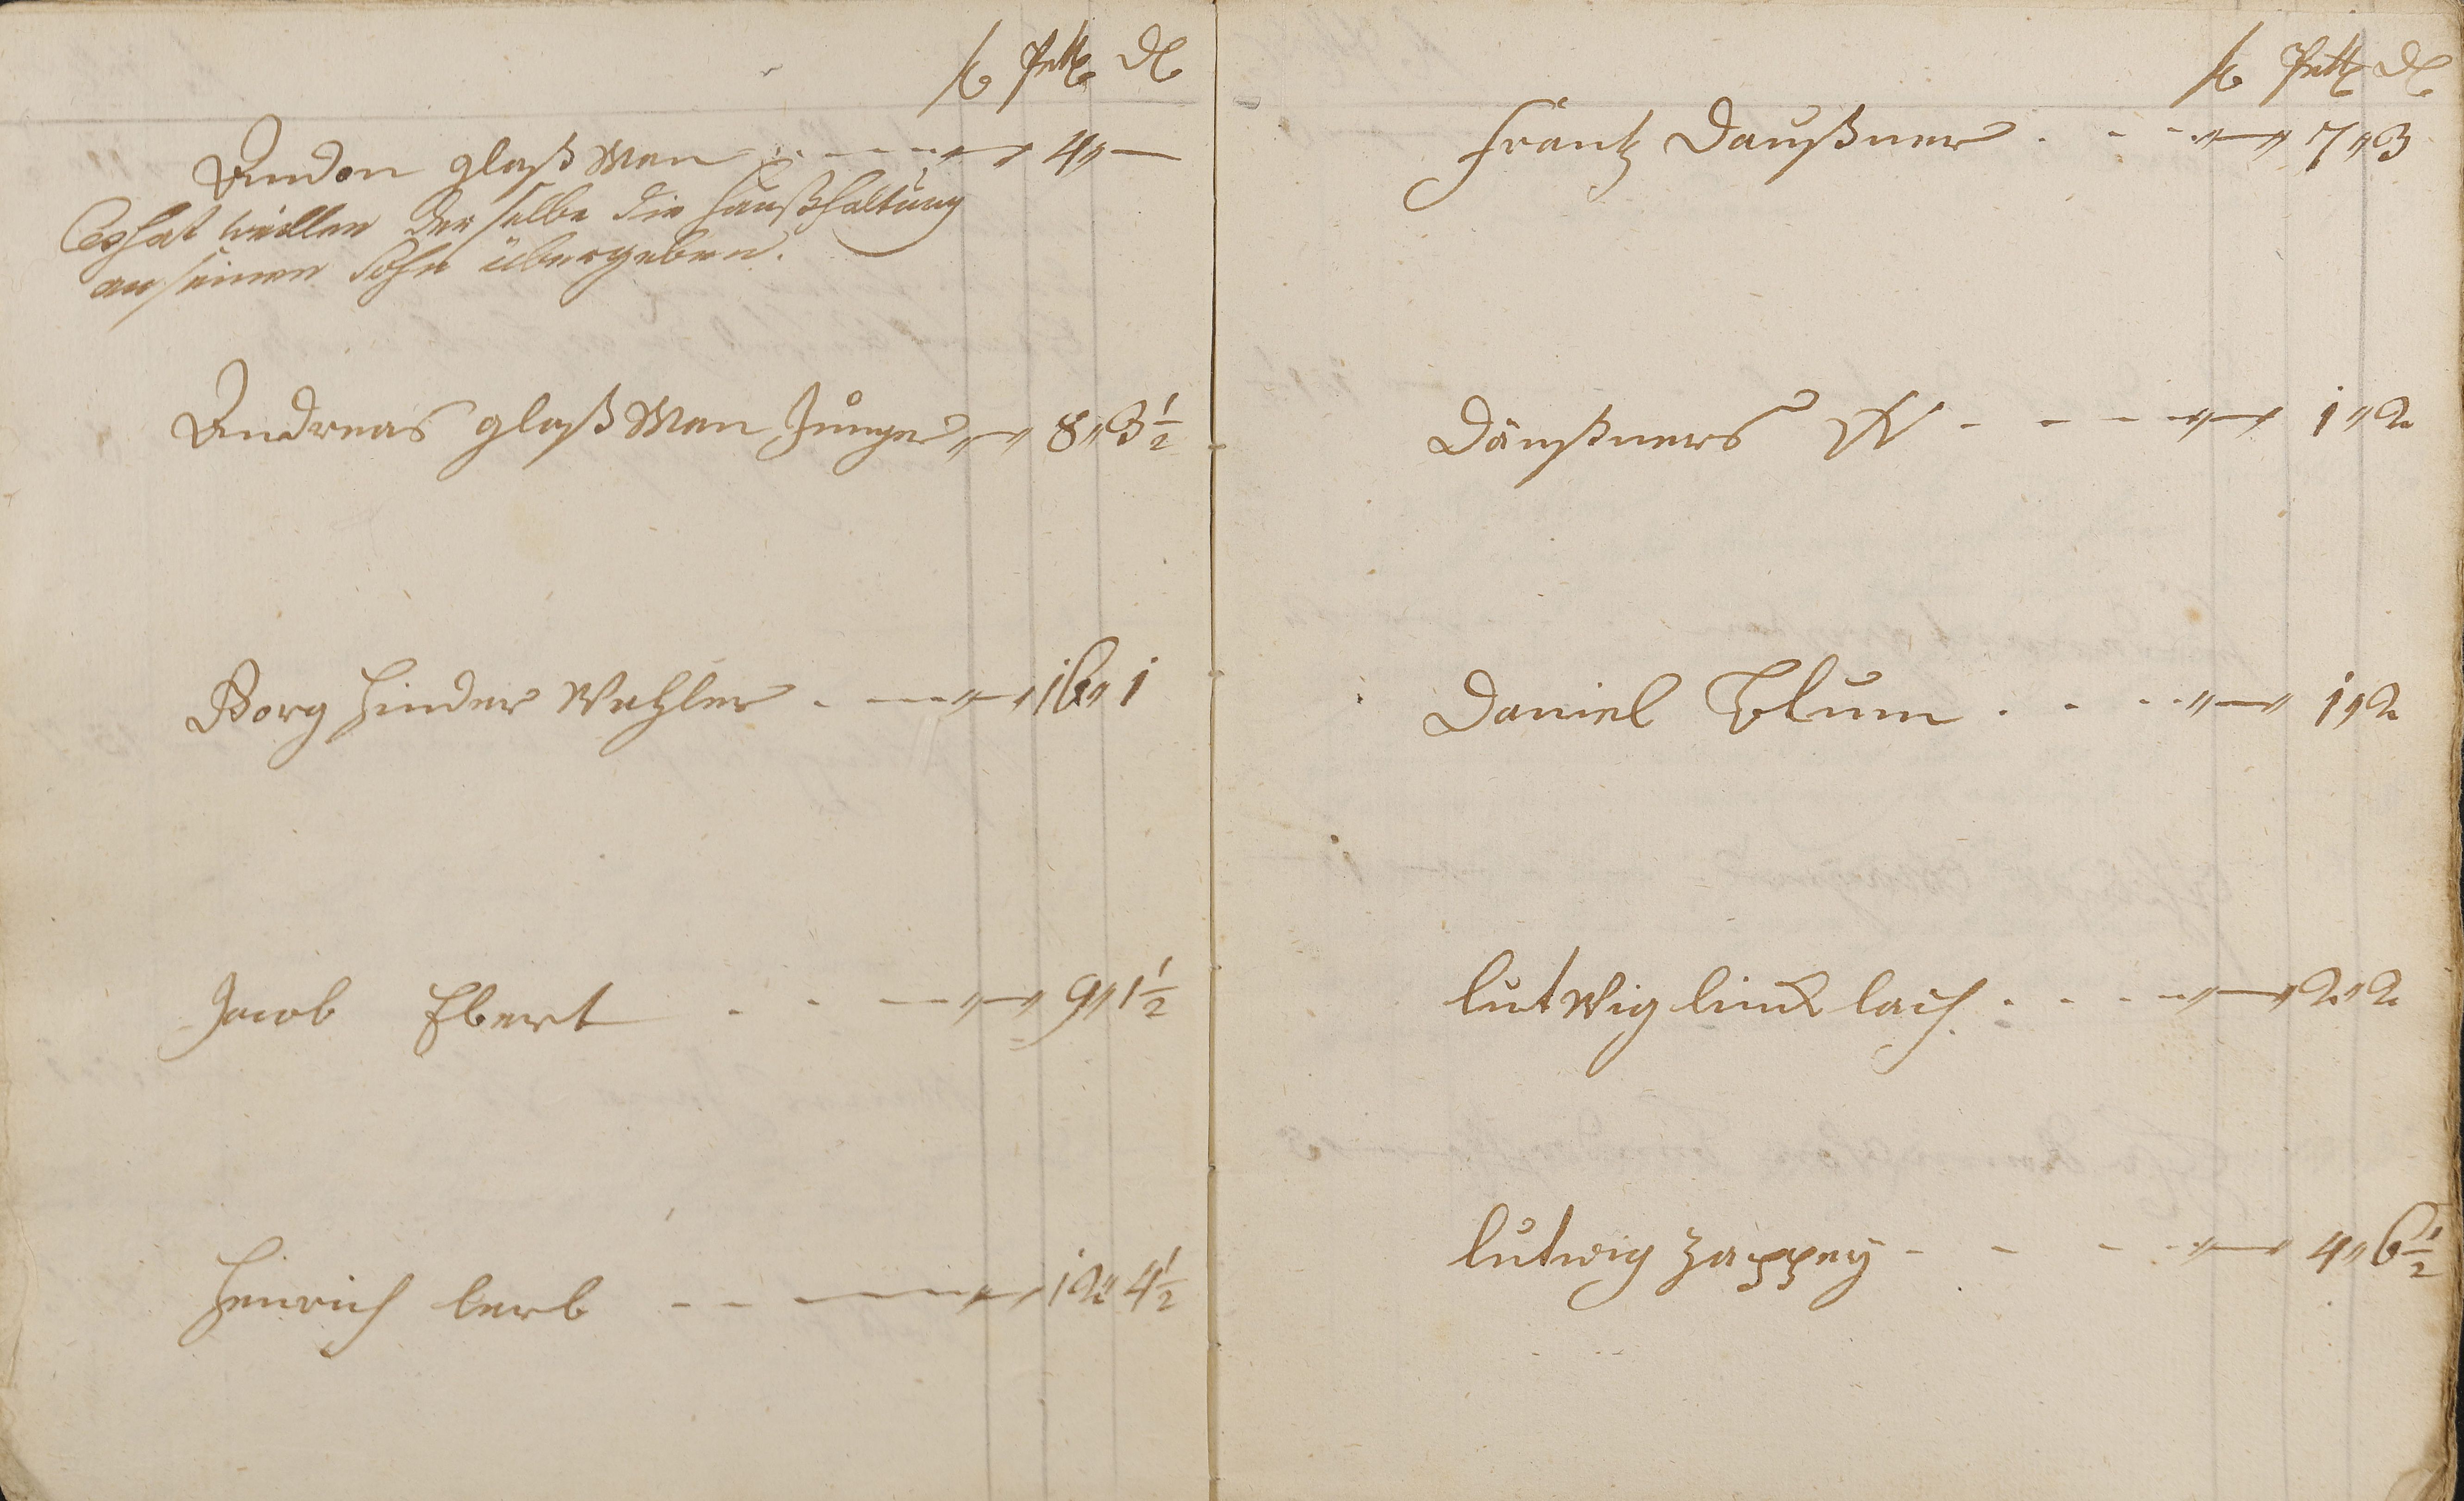 fl Btz ₰
Andon glaß Man - - - - „ — „ 4 „ —
Es hat weillen der selbe die haußhaltung
an seinen Sohn übergeben.
Andreas glaß Man Jünger „ — „ 8 „ 3 1/2
Borg Hinder Wehler . - - - „ — „ 16 „ 1
Jacob Ebert - - - - „ — „ 9 „ 1 1/2
Henrich lerb - - - - „ — „ 12 „ 4 1/2
fl Btz ₰
Frantz Daußner . - - - „ — „ 7 „ 3
Daußners W - - - - „ — „ 1 „ 2
Daniel Blum . - - - „ — „ 1 „ 2
lutwig lach . - - - „ — „ 2 „ 2
lutwig Zappey - - - - „ — „ 4 „ 6 1/2